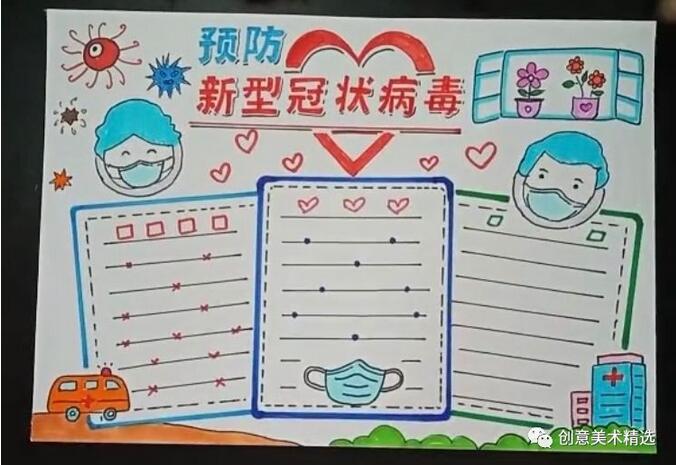 预防
新型冠状病毒
创意美术精选